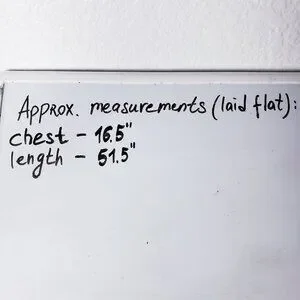 Approx. measurements (laid flat):
chest - 16.5"
length - 51.5"